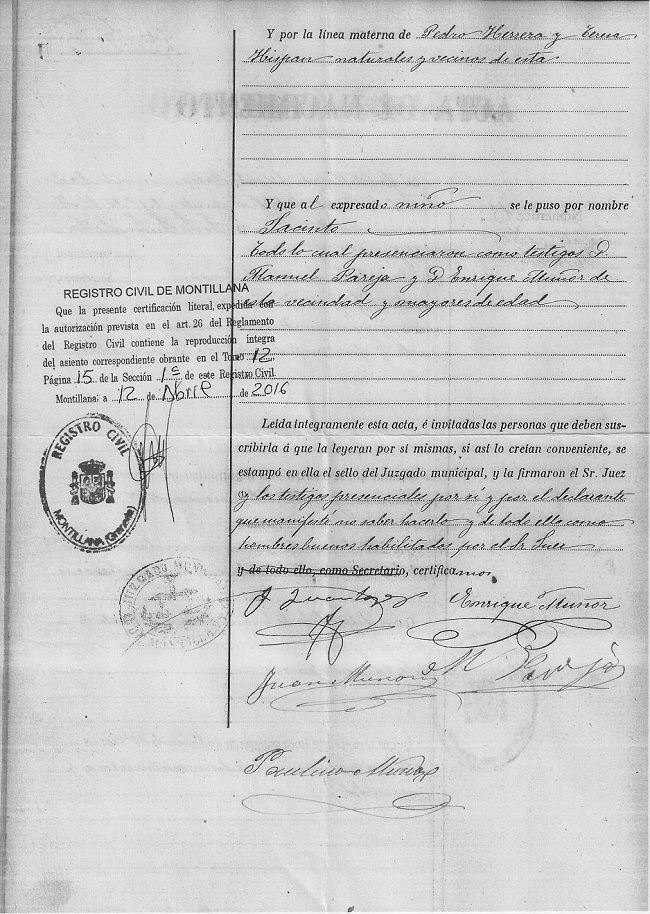 Y por la línea materna de Pedro Herrera y
Hispan naturales y vecinos de esta
Y que al expresado niño se le puso por nombre
Jacinto
todo lo cual presenciaron como testigos D.
Manuel Pareja y D Enrique Muñoz de
esta vecindad y mayores de edad
REGISTRO CIVIL DE MONTILLANA
Que la presente certificación literal, expedida con
la autorización prevista en el art. 26 del Reglamento
del Registro Civil contiene la reproducción íntegra
del asiento correspondiente obrante en el Tomo 12
Página 15 de la Sección 1ª de este Registro Civil.
Montillana; a 12 de Abril de 2016
REGISTRO CIVIL
MONTILLANA (Granada)
JUZGADO MUNICIPAL
Leida integramente esta acta, é invitadas las personas que deben sus-
cribirla á que la leyeran por si mismas, si asi lo creian conveniente, se
estampó en ella el sello del Juzgado municipal, y la firmaron el Sr. Juez
y los testigos presenciales por si y por el declarante
que manifesto no saber hacerlo y de todo ello como
hombres buenos habilitados por el Sr Juez
y de todo ello, como Secretario, certificamos
Juan Lopez Enrique Muñoz
Juan Muñoz M Pareja
Paulino Muñoz